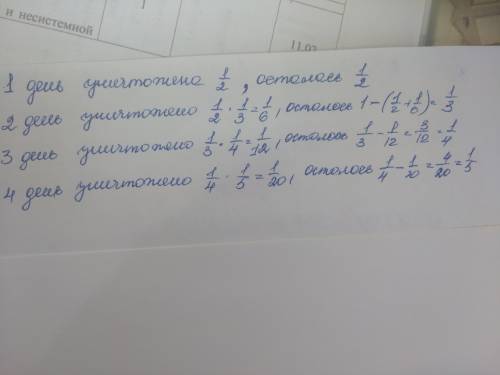 и несистемной
1
11.02
1 день уничтожена 1/2, осталось 1/2
2 день уничтожено 1/2 · 1/3 = 1/6, осталось 1-(1/2+1/6)= 1/3
3 день уничтожено 1/3 · 1/4 = 1/12, осталось 1/3 - 1/12 = 3/12 = 1/4
4 день уничтожено 1/4 · 1/5 = 1/20, осталось 1/4 - 1/20 = 4/20 = 1/5